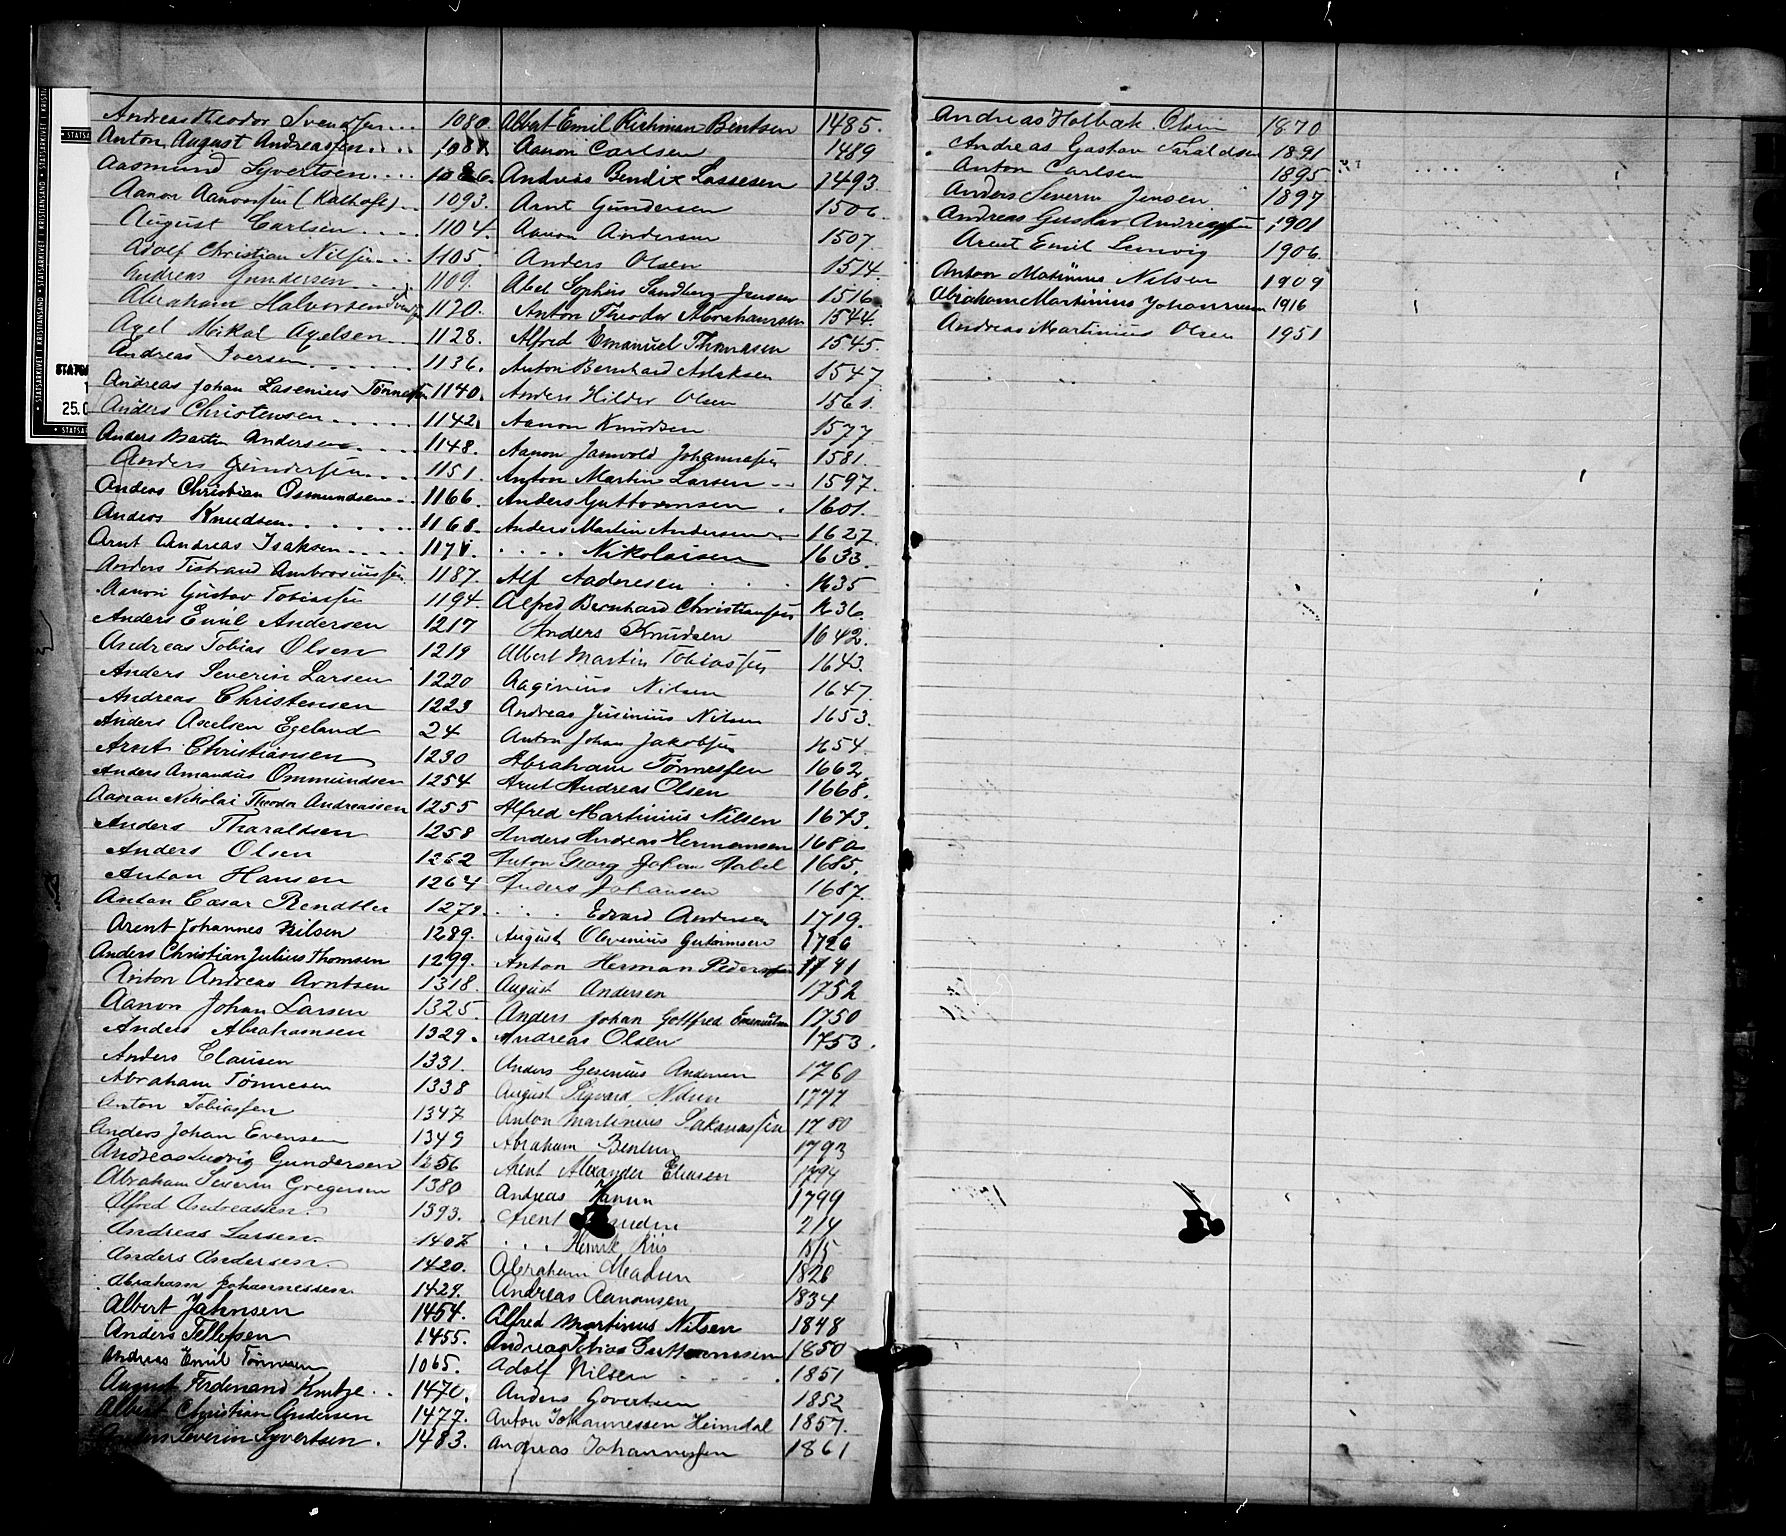 Andreas Theodor Svendsen ... 1080.
Anton August Andreassen ....
Aasmund Syvertsen .... 1086.
Aanon Aanonsen (Kalhoft) .. 1093.
August Carlsen .... 1104.
Adolf Christian Nilsen ... 1105
Andreas Gundersen .... 1109.
Abraham Halvorsen 1120.
Axel Mikal Axelsen .. 1128.
Andreas Iversen ....... 1136.
Andreas Johan Lasenius Tönnesen 1140.
Anders Christensen ..... 1142
Anders Martin Andersen .... 1148.
Anders Gundersen .... 1151.
Andeas Christian Osmundsen .. 1166.
Anders Knudsen ....... 1168.
Arnt Andreas Isaksen ....
Anders Tistrand Ambrosiussen 1187.
Aanon Gustav Tobiassen 1194.
Anders Emil Andersen 1217
Andreas Tobias Olsen 1219
Anders Severin Larsen 1220
Andreas Christensen 1223
Anders Axelsen Egeland 24
Arnt Christiansen 1230
Anders Amandus Ommundsen 1254
Aanan Nikolai Theodor Andreassen 1255
Anders Tharaldsen 1258
Anders Olsen 1262
Anton Hansen 1264
Anton Cæsar Rendtler 1279.
Arent Johannes Nilsen 1289.
Anders Christian Julius Thomsen 1299.
Anton Andreas Arntsen 1318.
Aanon Johan Larsen 1325.
Anders Abrahamsen 1329.
Anders Clausen 1331.
Abraham Tönnesen 1338
Anton Tobiassen 1347
Anders Johan Evensen 1349
Andreas Ludvig Gundersen 1256
Abraham Severin Gregersen 1380
Alfred Andreassen. 1393.
Andreas Larsen. 1407
Anders Andersen. 1420.
Abraham Johannessen 1429.
Albert Jahnsen 1454.
Anders Tellefsen 1455.
Andreas Emil Tönnesen 1065.
August Ferdinand Kuntze .. 1470.
Albert Christian Andersen 1477.
Anders Severin Syvertsen. 1483.
Albert Emil Richman Bentsen 1485.
Aanon Carlsen 1489
Andreas Bendix Lassesen 1493
Arnt Gundersen 1506
Aanon Andersen 1507.
Anders Olsen 1514.
Abel Sophus Sandberg Jensen 1516
Anton Theodor Abrahamsen 1544.
Alfred Emanuel Thomasen 1545.
Anton Bernhard Aslaksen 1547
Anders Hilder Olsen 1561.
Aanon Knudsen 1577.
Aanon Jamvold Johannesen 1581.
Anton Martin Larsen .. 1597.
Anders Guttormsen . 1601.
Anders Martin Andersen 1627.
.... Nikolaisen 1633.
Alf Aadnesen ... 1635
Alfred Bernhard Christiansen 1636.
Anders Knudsen 1642.
Albert Martin Tobiassen 1643.
Aaginius Nilsen 1647.
Andreas Jusinius Nilsen 1653.
Anton Johan Jakobsen 1654.
Abraham Tönnessen 1662.
Arnt Andreas Olsen 1668.
Alfred Martinius Nilsen 1673.
Anders Andreas Hermansen 1680
Anton Georg Johan Aabel 1685.
Anders Johansen 1687.
... Edvard Andersen 1719.
August Olevenius Gutormsen 1726
Anton Herman Pedersen 1741
August Andersen 1752
Anders Johan Gottfred Emanuelsen 1750
Andreas Olsen 1753.
Anders Gesenius Andersen 1760
August Sigvard Nilsen 1777
Anton Martinius Sakariassen 1780
Abraham Bentsen 1793
Arent Alexander Eliasen 1794
Andreas Hansen 1799
Arent 214
... Henrik Riis 1815
Abraham Madsen 1826
Andreas Aanonsen 1834
Alfred Martinus Nilsen 1848
Andreas Tobias Guttormsen 1850
Adolf Nilsen ..... 1851
Anders Govertsen 1852
Anton Johannessen Heimdal 1857.
Andreas Johannessen 1861
Andreas Holbak Olsen 1870
Andreas Gustav Taraldsen 1891
Anton Carlsen 1895
Anders Severin Jensen 1897
Andreas Gustav Andreassen 1901
Arent Emil Lervig 1906
Anton Matinius Nilsen 1909
Abraham Martinius Johannesen 1916
Andreas Martinius Olsen 1951
STATSARKIVET I KRISTIANSAND